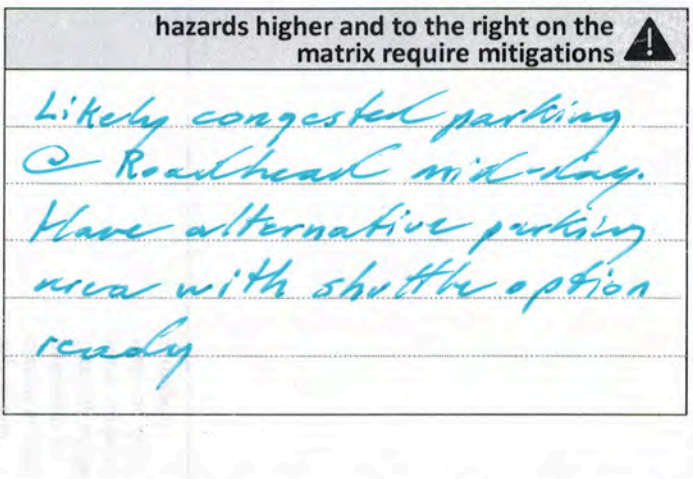 hazards higher and to the right on the
matrix require mitigations
Likely congested parking
@ Roadhead mid-day.
Have alternative parking
area with shuttle option
ready